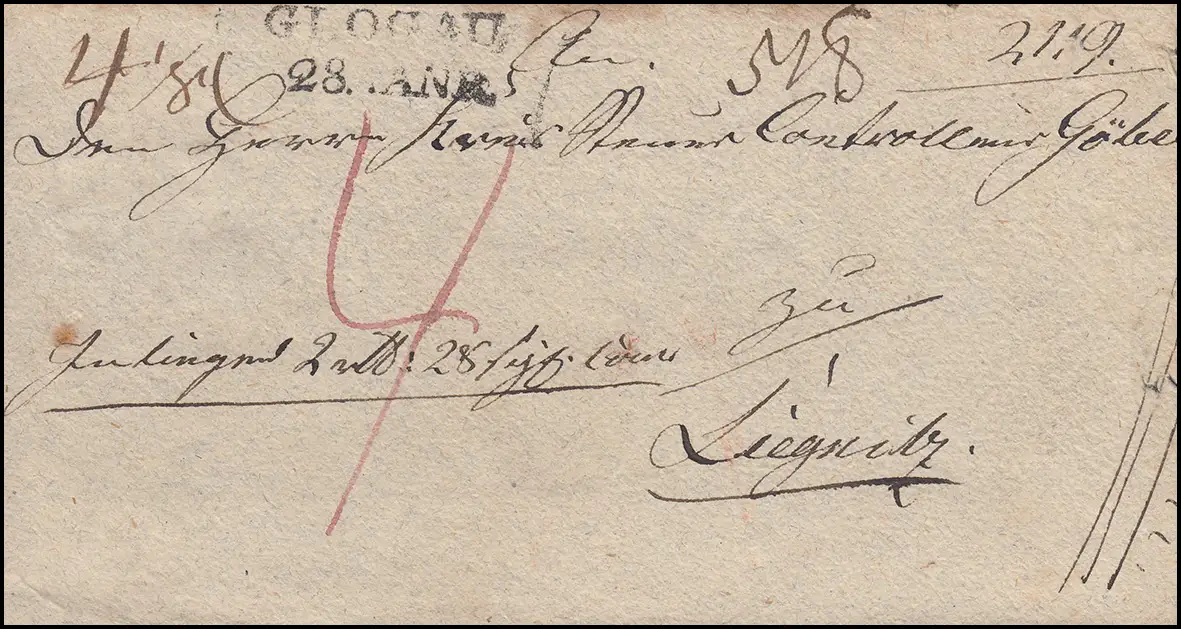 GLOGAU
28. JANR.
An
578
2119.
Den Herrn Kreis Steuer Controlleur Göbel
4
zu
Inliegend 2 rtl: 28 sgr. Cour
Liegnitz.